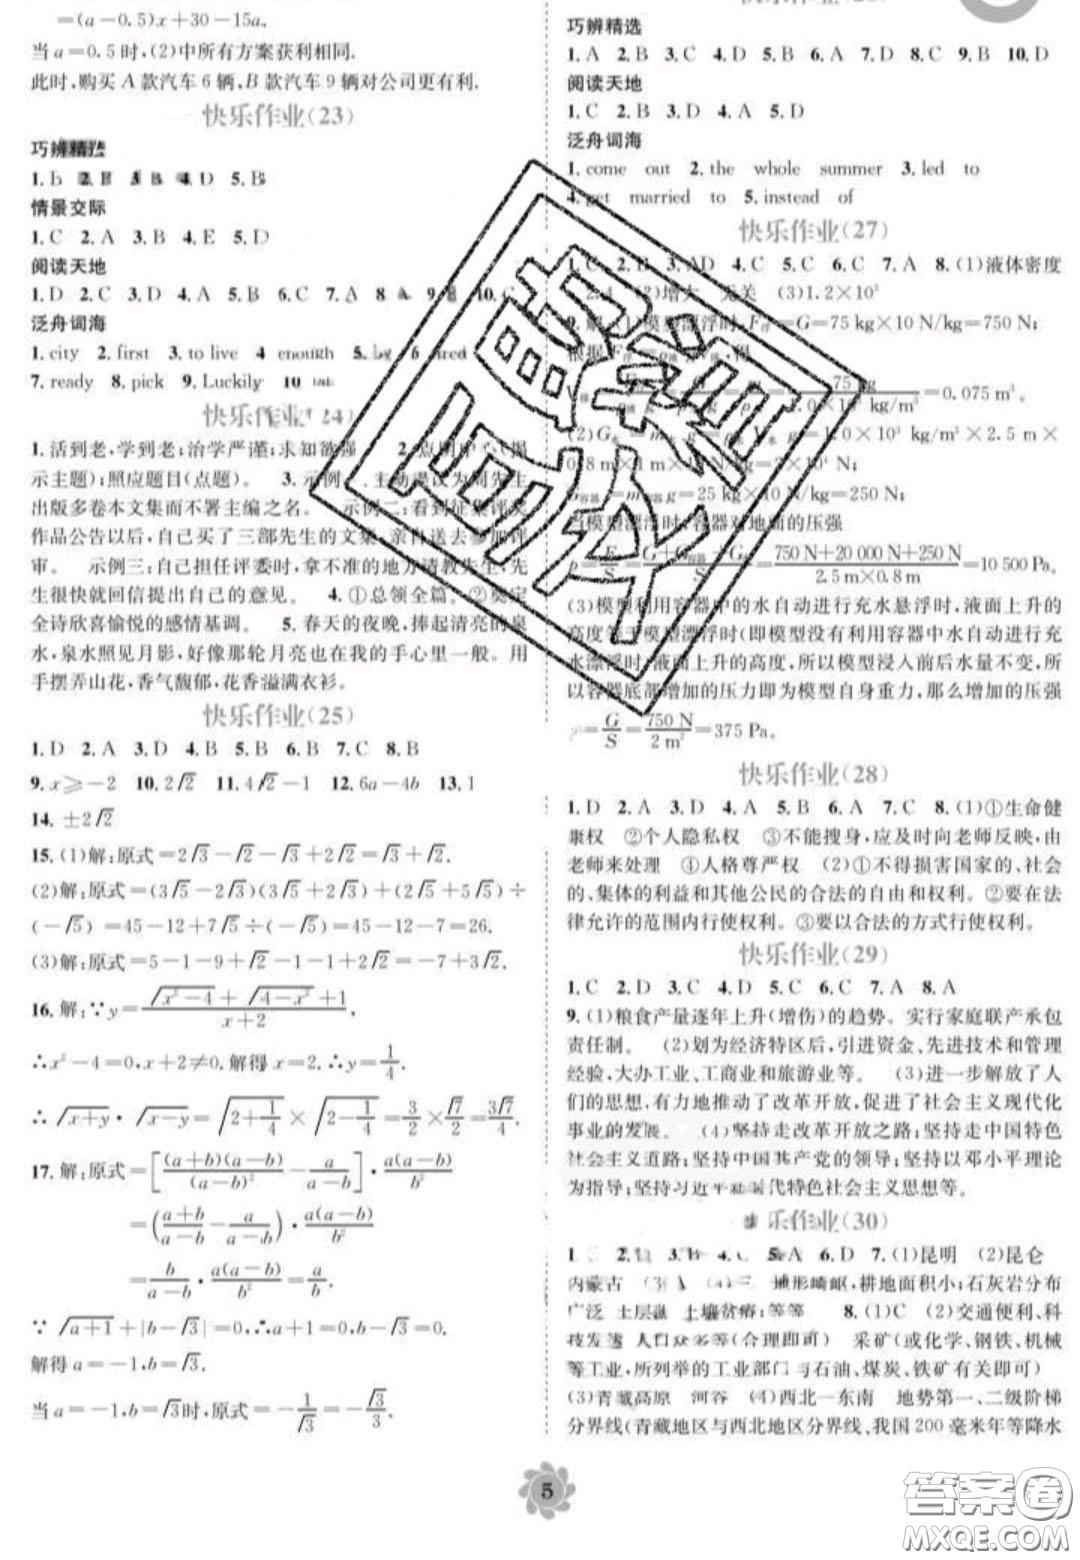 =(a-0.5)x+30-15a.
当a=0.5时,(2)中所有方案获利相同.
此时,购买A款汽车6辆,B款汽车9辆对公司更有利.
快乐作业(23)
巧辨精选
4.D 5.B
情景交际
1.C 2.A 3.B 4.E 5.D
阅读天地
1.D 2.C 3.D 4.A 5.B 6.C 7.A 8 9. 10.C
泛舟词海
1.city 2.first 3.to live 4 enough 5.
7.ready 8.pick 9.Luckily 10
快乐作业(24)
1.活到老,学到老;治学严谨;求知欲强 2.点明中心(揭
示主题);照应题目(点题). 3.示例一:主动提议为周先生
出版多卷本文集而不署主编之名. 示例二:看到征集评奖
作品公告以后,自己买了三部先生的文集,亲自送去参加评
审. 示例三:自己担任评委时,拿不准的地方请教先生,先
生很快就回信提出自己的意见。 4.①总领全篇。②奠定
全诗欣喜愉悦的感情基调。 5.春天的夜晚,捧起清亮的泉
水,泉水照见月影,好像那轮月亮也在我的手心里一般。用
手摆弄山花,香气馥郁,花香溢满衣衫。
快乐作业(25)
1.D 2.A 3.D 4.B 5.B 6.B 7.C 8.B
9.x≥-2 10.2√2 11.4√2-1 12.6a-4b 13.1
14.±2√2
15.(1)解:原式=2√3-√2-√3+2√2=√3+√2.
(2)解:原式=(3√5-2√3)(3√5+2√3)+(2√5+5√5)÷
(-√5)=45-12+7√5÷(-√5)=45-12-7=26.
(3)解:原式=5-1-9+√2-1-1+2√2-1=-7+3√2.
16.解:∵y=(√(x²-4)+√(4-x²)+1)/(x+2),
∴x²-4=0,x+2≠0.解得x=2.∴y=1/4.
∴√(x+y)·√(x-y)=√(2+1/4)×√(2-1/4)=3/2×√7/2=3√7/4.
17.解:原式=[(a+b)(a-b)/(a-b)²-a/(a-b)]·a(a-b)/b²
=((a+b)/(a-b)-a/(a-b))·a(a-b)/b²
=b/(a-b)·a(a-b)/b²=a/b.
∵√(a+1)+|b-√3|=0,∴a+1=0,b-√3=0.
解得a=-1,b=√3.
当a=-1,b=√3时,原式=-1/√3=-√3/3.
巧辨精选
1.A 2.B 3.C 4.D 5.B 6.A 7.C 8.D 9.B 10.D
阅读天地
1.C 2.B 3.D 4.A 5.D
泛舟词海
1.come out 2.the whole summer 3.led to
4.get married to 5.instead of
快乐作业(27)
1.C 2.B 3.AD 4.C 5.C 6.C 7.A 8.(1)液体密度
2.4 (2)增大 无关 (3)1.2×10³
9.解:(1)模型漂浮时,F浮=G=75 kg×10 N/kg=750 N;
=0.075 m³.
(2)G水=m水g=ρ水V水g=1.0×10³ kg/m³×2.5 m×
G容器=m容器g=25 kg×10 N/kg=250 N;
当模型漂浮时,容器对地面的压强
p=F/S=(G+G容器+G水)/S=(750 N+20 000 N+250 N)/(2.5 m×0.8 m)=10 500 Pa.
(3)模型利用容器中的水自动进行充水悬浮时,液面上升的
高度等于模型漂浮时(即模型没有利用容器中水自动进行充
水漂浮时)液面上升的高度,所以模型浸入前后水量不变,所
以容器底部增加的压力即为模型自身重力,那么增加的压强
p=G/S=750 N/2 m²=375 Pa.
快乐作业(28)
1.D 2.A 3.D 4.A 5.B 6.A 7.C 8.(1)①生命健
康权 ②个人隐私权 ③不能搜身,应及时向老师反映,由
老师来处理 ④人格尊严权 (2)①不得损害国家的、社会
的、集体的利益和其他公民的合法的自由和权利。②要在法
律允许的范围内行使权利。③要以合法的方式行使权利。
快乐作业(29)
1.C 2.D 3.C 4.D 5.C 6.C 7.A 8.A
9.(1)粮食产量逐年上升(增伤)的趋势。实行家庭联产承包
责任制。 (2)划为经济特区后,引进资金、先进技术和管理
经验,大办工业、工商业和旅游业等。 (3)进一步解放了人
们的思想,有力地推动了改革开放,促进了社会主义现代化
事业的发展。 (4)坚持走改革开放之路;坚持走中国特色
社会主义道路;坚持中国共产党的领导;坚持以邓小平理论
为指导;坚持习近平新时代特色社会主义思想等。
乐作业(30)
5.A 6.D 7.(1)昆明 (2)昆仑
内蒙古 (3)A (4)三 地形崎岖,耕地面积小;石灰岩分布
广泛 土层温 土壤贫瘠;等等 8.(1)C (2)交通便利、科
技发达 人口众多等(合理即可) 采矿(或化学、钢铁、机械
等工业,所列举的工业部门与石油、煤炭、铁矿有关即可)
(3)青藏高原 河谷 (4)西北—东南 地势第一、二级阶梯
分界线(青藏地区与西北地区分界线、我国200毫米年等降水
5
答案卷
MXQE.COM